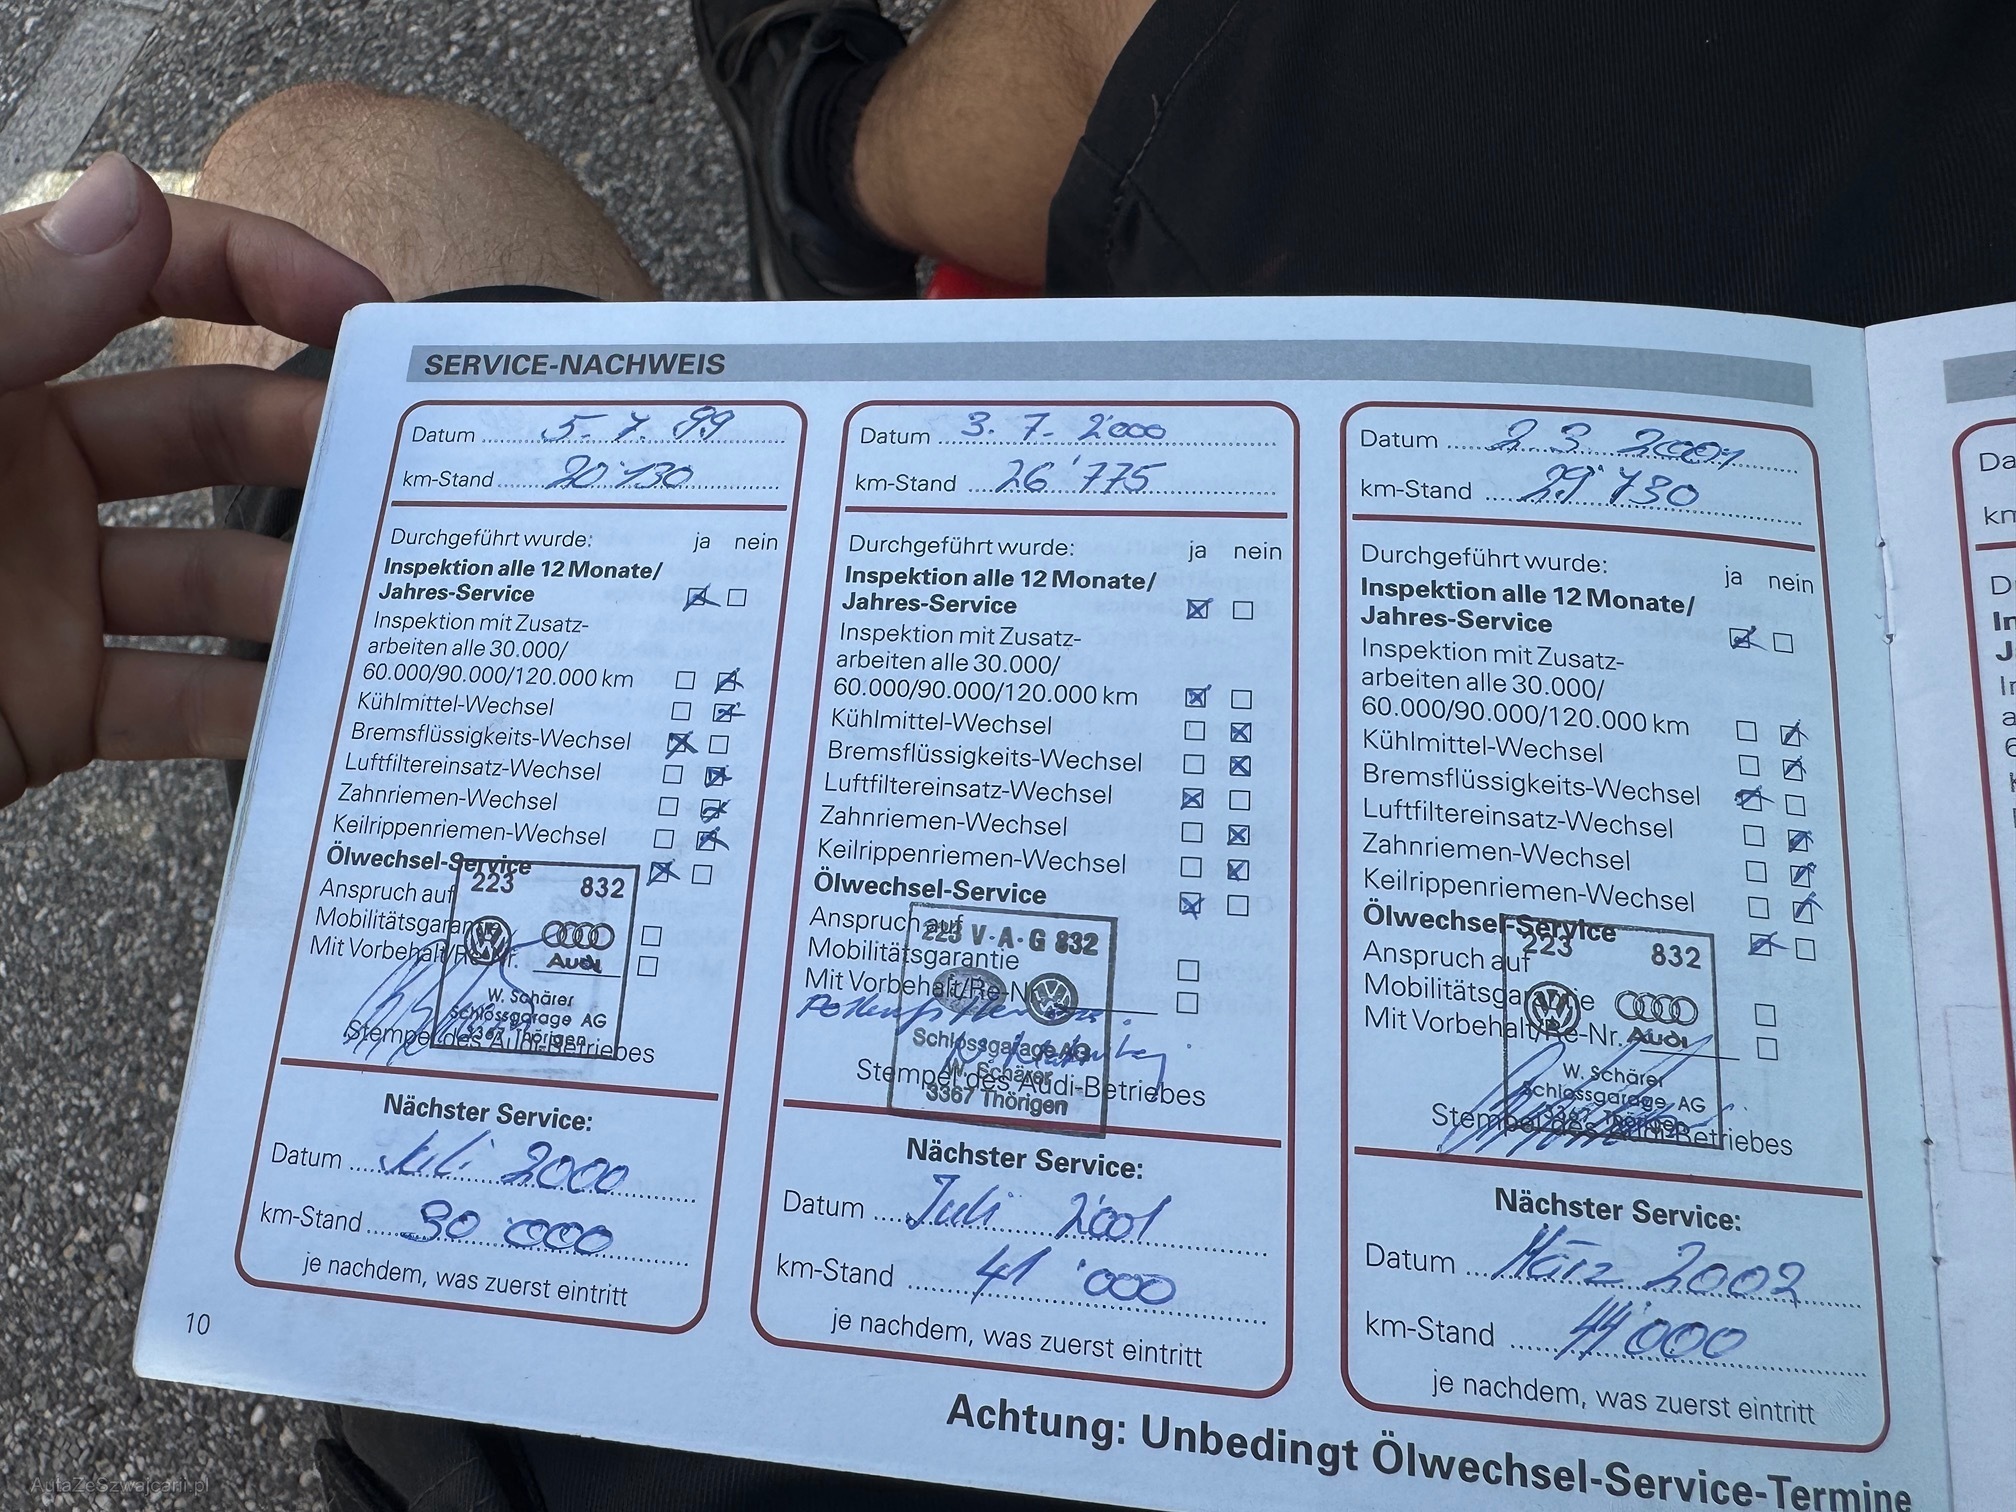 SERVICE-NACHWEIS
Datum 5. 7. 99
km-Stand 20'130
Durchgeführt wurde: ja nein
Inspektion alle 12 Monate/
Jahres-Service
Inspektion mit Zusatz-
arbeiten alle 30.000/
60.000/90.000/120.000 km
Kühlmittel-Wechsel
Bremsflüssigkeits-Wechsel
Luftfiltereinsatz-Wechsel
Zahnriemen-Wechsel
Keilrippenriemen-Wechsel
Ölwechsel-Service
223 832
Anspruch auf
Mobilitätsgarantie
Mit Vorbehalt/Re-Nr.
Audi
W. Schärer
Schlossgarage AG
3367 Thörigen
Stempel des Audi-Betriebes
Nächster Service:
Datum Juli 2000
km-Stand 30'000
je nachdem, was zuerst eintritt
10
Datum 3. 7. 2'000
km-Stand 26'775
Durchgeführt wurde: ja nein
Inspektion alle 12 Monate/
Jahres-Service
Inspektion mit Zusatz-
arbeiten alle 30.000/
60.000/90.000/120.000 km
Kühlmittel-Wechsel
Bremsflüssigkeits-Wechsel
Luftfiltereinsatz-Wechsel
Zahnriemen-Wechsel
Keilrippenriemen-Wechsel
Ölwechsel-Service
Anspruch auf
223 V·A·G 832
Mobilitätsgarantie
Mit Vorbehalt/Re-Nr.
Schlossgarage AG
W. Schärer
Stempel des Audi-Betriebes
3367 Thörigen
Nächster Service:
Datum Juli 2'001
km-Stand 41'000
je nachdem, was zuerst eintritt
Datum 2. 3. 2001
km-Stand 29'730
Durchgeführt wurde: ja nein
Inspektion alle 12 Monate/
Jahres-Service
Inspektion mit Zusatz-
arbeiten alle 30.000/
60.000/90.000/120.000 km
Kühlmittel-Wechsel
Bremsflüssigkeits-Wechsel
Luftfiltereinsatz-Wechsel
Zahnriemen-Wechsel
Keilrippenriemen-Wechsel
Ölwechsel-Service
223 832
Anspruch auf
Mobilitätsgarantie
Mit Vorbehalt/Re-Nr.
Audi
W. Schärer
Schlossgarage AG
3367 Thörigen
Stempel des Audi-Betriebes
Nächster Service:
Datum März 2002
km-Stand 44'000
je nachdem, was zuerst eintritt
Achtung: Unbedingt Ölwechsel-Service-Termine
AutaZeSzwajcarii.pl